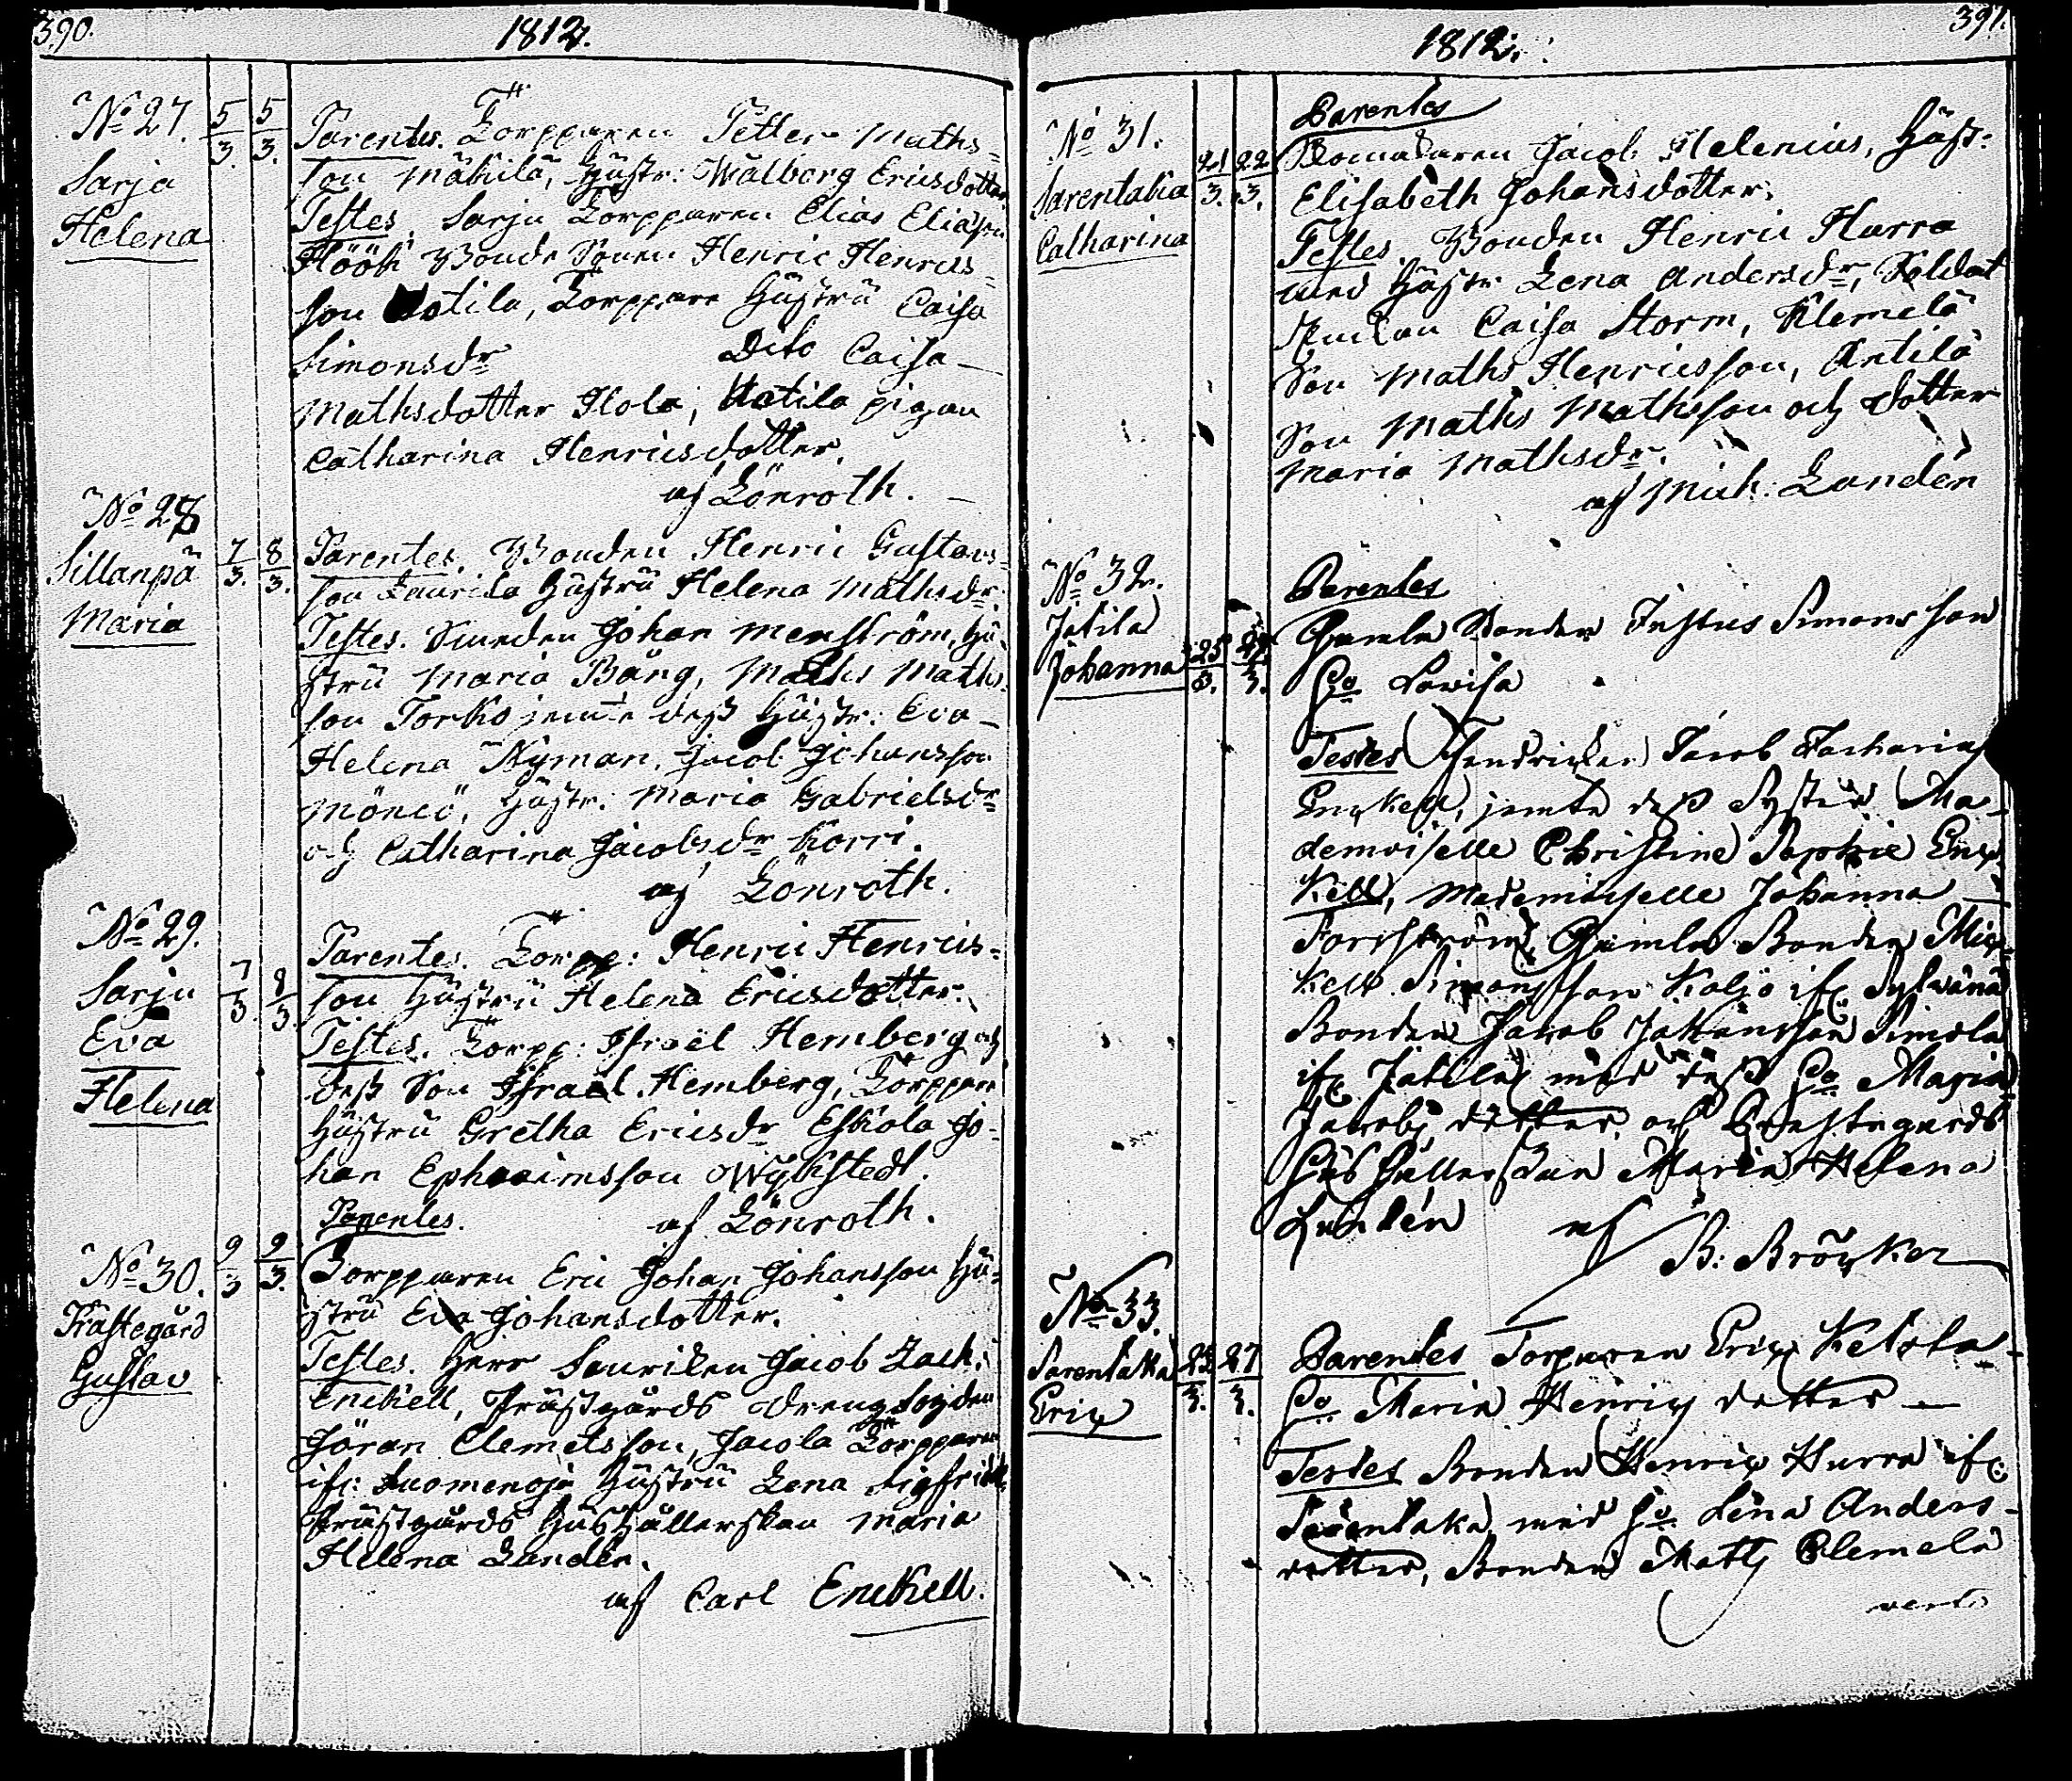 390.
1812.
No 27.
Sarja
Helena
5/3. 5/3.
Parentes. Torpparen Petter Maths=
son Mäkilä, Hustr: Wålborg Ericsdotter
Testes. Sarju Torpparen Elias Eliasson
Höök Bonde Sonen Henric Henrics=
son Uotila, Torppare Hustru Caisa
Simonsdr Dito Caisa
Mathsdotter Hola, Uotila pigan
Catharina Henricsdotter.
af Lönroth.
No 28
Sillanpä
Maria
7/3. 8/3.
Parentes. Bonden Henric Gustavs=
son Laurila Hustru Helena Mathsdr.
Testes. Smeden Johan Menström, Hu=
stru Maria Bång, Maths Maths=
son Torko jemte dess Hustr: Eva
Helena Nyman, Jacob Johansson
Mönciö, Hustr: Maria Gabrielsdr
och Catharina Jacobsdr Korri.
af Lönroth.
No 29.
Sarju
Eva
Helena
7/3. 8/3
Parentes. Torpp: Henric Henrics=
son Hustru Helena Ericsdotter.
Testes. Torpp: Israël Hemberg och
dess Son Israel Hemberg, Torppare
Hustru Gretha Ericsdr Eskola Jo=
han Ephraimsson Wykstedt.
af Lönroth.
No 30.
Prästegård
Gustav
9/3 9/3.
Parentes.
Torpparen Eric Johan Johansson Hu=
stru Eva Johansdotter.
Testes. Herr Jacob Zach:
Enckell, Prästgårds Dreng
Göran Clemetsson, Jacola Torpparen
ifr: Suomenoja Hustru Lena Sigfridsdr
Prästgårds Hushållerskan Maria
Helena Lunden.
af Carl Enckell.
391.
1812.
No 31.
Sarentaka
Catharina
21/3. 22/3.
Parentes
Jacob Helenius, Hustr:
Elisabeth Johansdotter.
Testes. Bonden Henric Hurra
med Hustr. Lena Andersdr, Soldat
Enckan Caisa Storm, Klemelä
Son Maths Henricsson, Antilä
Son Maths Mathsson och dotter
Maria Mathsdr.
af Mich: Landén
No 32.
Jatila
Johanna
25/3. 27/3.
Parentes
Gamla Bonden Justus Simonsson
Ho Lovisa
Testes Jacob Zacharias
Enckell, jemte dess Syster Ma=
demoiselle Christine Sophie Enc=
kell, Mademoiselle Johanna
Forsström, Gamla Bonden Mic=
kel Simonsson Koljo ifr Sylvänä
Bonden Jacob Johansson Simola
ifr Jatila med dess Ho Maria
Jacobs dotter och Prestegårds
Hushållerskan Maria Helena
Lundén af
B: Bröcker
No 33.
Sarentaka
Eric
25/3. 27/3.
Parentes Torparen Eric Ketola
Ho Maria Henrics dotter
Testes Bonden Henric Hurra ifr
Sarentaka, med Ho Lena Anders=
dotter, Bonden Matts Clemela
verte